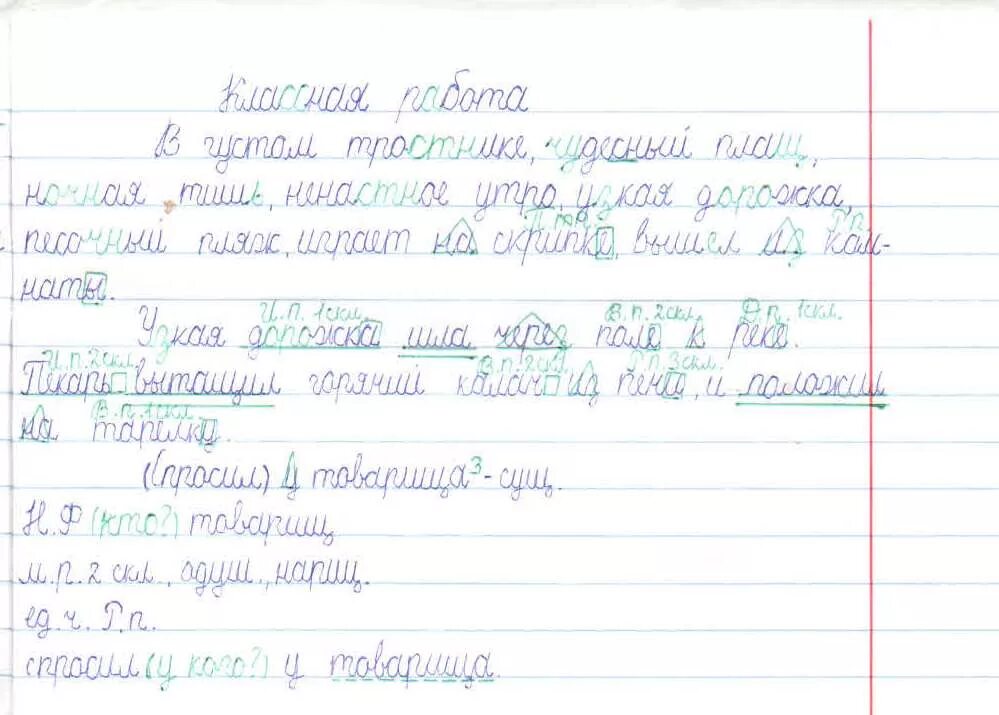 Классная работа
В густом тростнике, чудесный плащ,
ночная тишь, ненастное утро, узкая дорожка,
П.п. Р.п.
песочный пляж, играет на скрипке, вышел из ком-
наты.
И.п. 1скл. В.п. 2скл. Д.п. 1скл.
Узкая дорожка шла через поле к реке.
И.п. 2скл. В.п. 2скл. Р.п. 3скл.
Пекарь вытащил горячий калач из печи, и положил
В.п. 1скл.
на тарелку.
(Спросил) у товарища³- сущ.
Н.Ф (кто?) товарищ
м.р. 2 скл., одуш., нариц.
ед.ч. Р.п.
спросил (у кого?) у товарища.